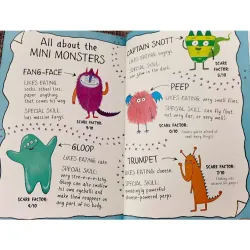 All about the
MINI MONSTERS
FANG-FACE
LIKES EATING:
socks, school ties,
paper, anything
that comes his way
SPECIAL SKILL:
has massive fangs.
SCARE FACTOR:
9/10
GLOOP
LIKES EATING: cake.
SPECIAL SKILL:
very s-t-r-e-t-c-h-y.
Gloop can also swallow
his own eyeballs and
make them reappear on
any part of his body.
SCARE FACTOR:
4/10
CAPTAIN SNOTT
LIKES EATING:
SPECIAL SKILL:
can glow in the dark.
SCARE
FACTOR:
5/10
PEEP
LIKES EATING: very small flies.
SPECIAL SKILL: can fly (but
not very far, or very well).
SCARE FACTOR:
0/10
TRUMPET
LIKES EATING: cheese.
SPECIAL SKILL:
amazingly powerful
cheese-powered parps.
SCARE FACTOR: